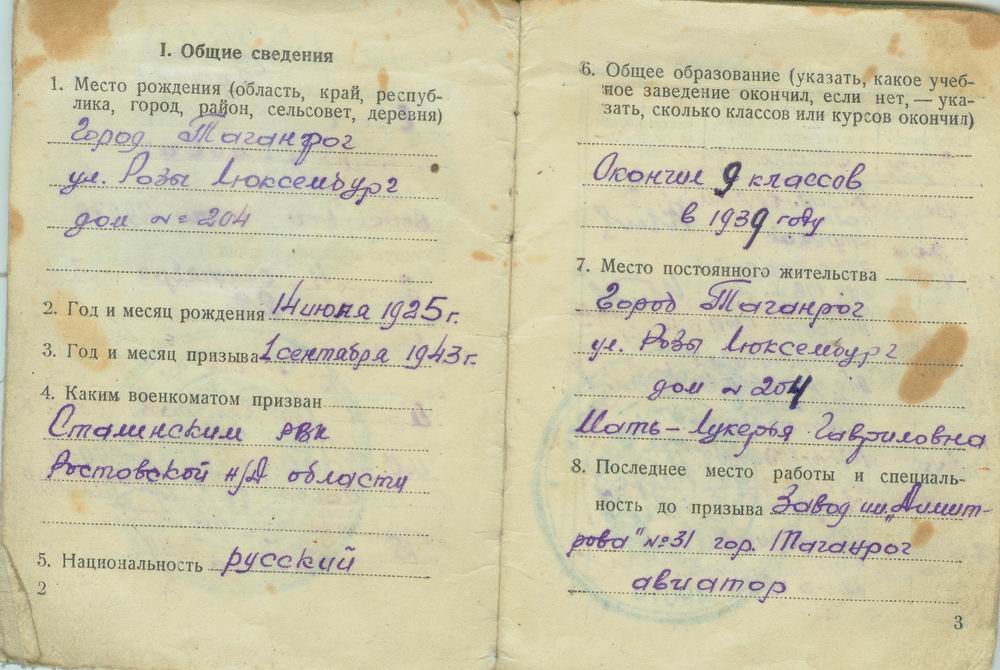 I. Общие сведения
1. Место рождения (область, край, респуб-
лика, город, район, сельсовет, деревня)
Город Таганрог
ул. Розы Люксембург
дом № 204
2. Год и месяц рождения 14 июня 1925 г.
3. Год и месяц призыва 1 сентября 1943 г.
4. Каким военкоматом призван
Сталинским РВК
Ростовской н/Д области
5. Национальность русский
2
6. Общее образование (указать, какое учеб-
ное заведение окончил, если нет, — ука-
зать, сколько классов или курсов окончил)
Окончил 9 классов
в 1939 году
7. Место постоянного жительства
Город Таганрог
ул. Розы Люксембург
дом № 204
Мать – Лукерья Гавриловна
8. Последнее место работы и специаль-
ность до призыва Завод им. „Димит-
рова" № 31 гор. Таганрог
авиатор
3